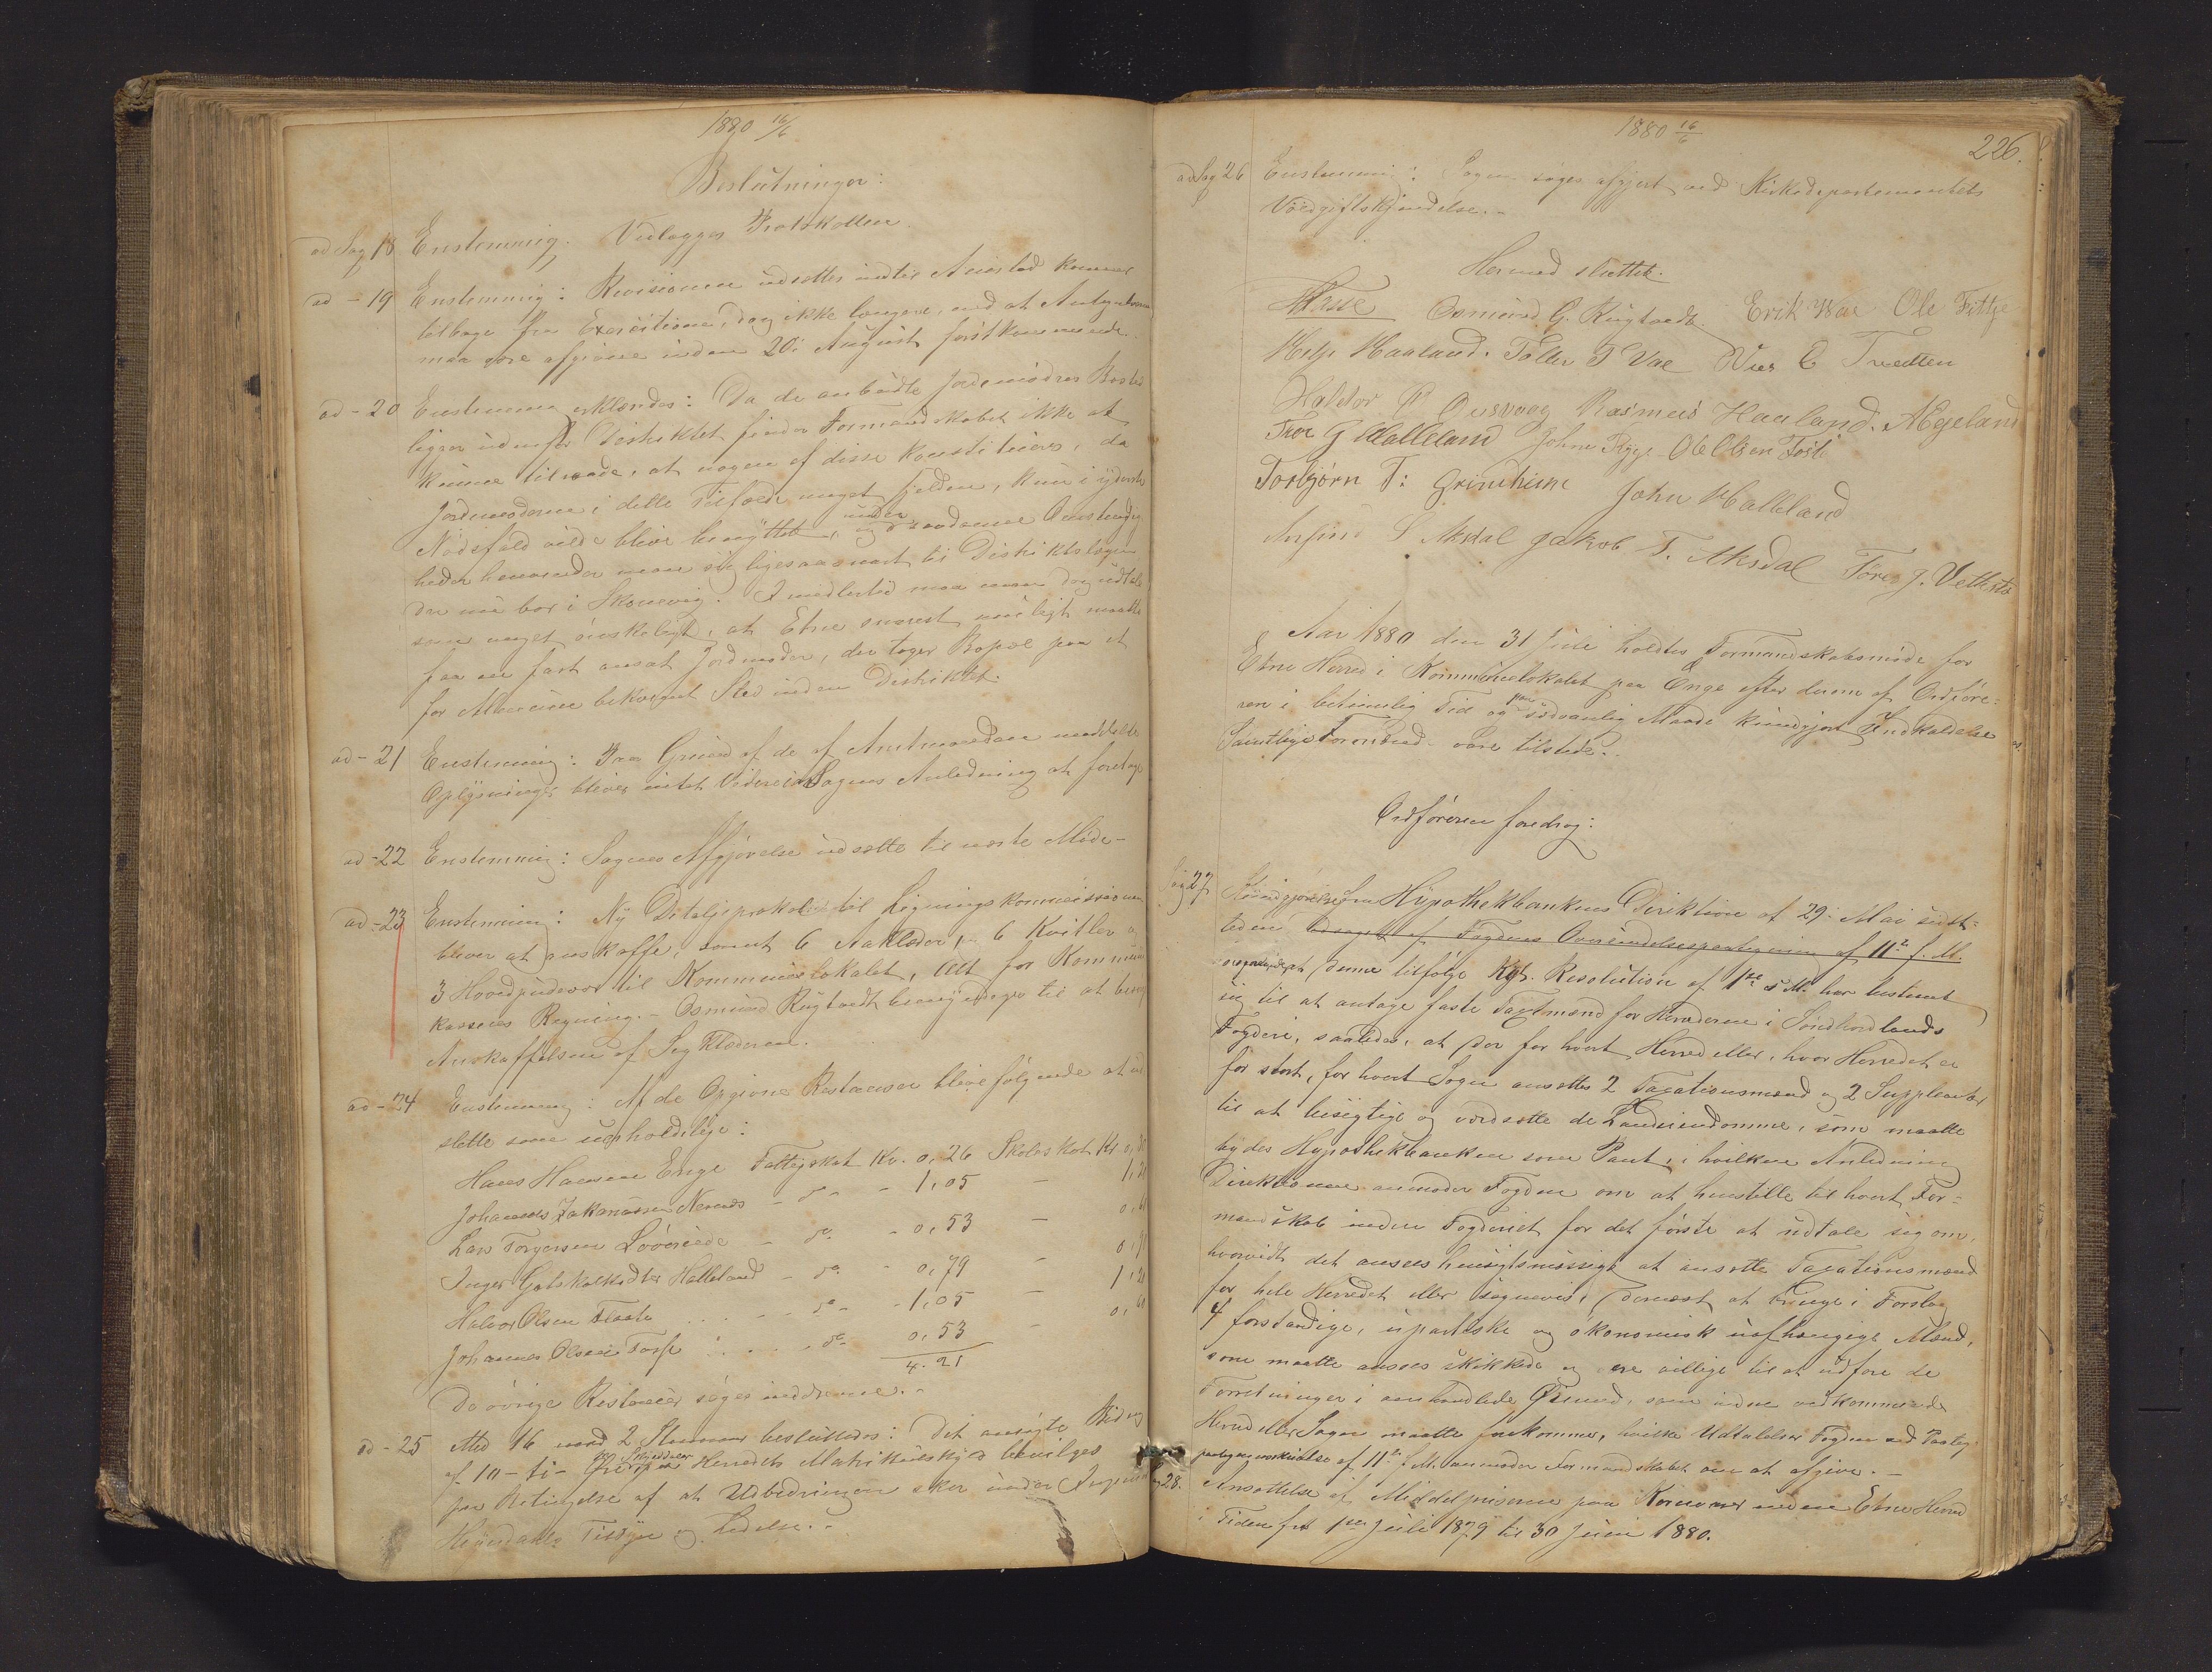 1880 16/6
Beslutninger:
ad Sag 18 Enstemmig. Vedlægges Protokollen.
ad - 19 Enstemmig: Revisionen udsættes indtil Aarstad kommer
tilbage fra Exercitsen, dog ikke længere, end at Antegnelserne
maa være afgivne inden 20. August førstkommende.
ad - 20 Enstemmig erklæredes: Da de anbudte Jordemødres Bosted
ligger udenfor Distriktet finder Formandskabet ikke at
kunne tilraade, at nogen af disse konstitueres, da
Jordmoderen i dette Tilfælde meget sjelden, kun i yderste
Nødsfald vilde blive benyttet, under saadanne Omstændig
heder henvender man sig ligesaasnart til Distriktslægen
der nu bor i Skonevig. Imidlertid maa man dog udtale
som meget ønskeligt, at Etne snarest muligt maatte
faa en fast ansat Jordmoder, der tager Bopæl paa et
for Almuen bekvemt Sted inden Distriktet.
ad - 21 Enstemmig: Paa Grund af de af Amtmanden meddelte
Oplysninger bliver intet Videre i Sagens Anledning at foretage
ad - 22 Enstemmig: Sagens Afgjørelse udsættes til næste Møde -
ad - 23 Enstemmig: Ny Detaljeprotokol til Ligningskommissionen
bliver at anskaffe, samt 6 Aaklæder, 6 Kvitler og
3 Hovedpuder til Kommunelokalet, Alt for Kommune
kassens Regning. - Osmund Rugtvedt bemyndiges til at besørge
Anskaffelsen af Sengklæderne.
ad - 24 Enstemmig: Af de Opgivne Restancer blive følgende at ud
slette som uerholdelige:
Hans Hansen Enge Fattigskat Kr. 0,26 Skoleskat Kr 0,30
Johannes Zakariassen Nernes - do - - 1,05 - 1,20
Lars Torgersen - do. - 0,53 - 0,60
Inger Gotskalksdtr Halleland - do - 0,79 - 0,90
Halvor Olsen Flaate - - do - - 1,05 - 1,20
Johannes Olsen - do - 0,53 - 0,60
4.21
De øvrige Restancer søges inddrevne. -
ad - 25 Med 16 mod 2 Stemmer besluttedes: Det ansøgte Bidrag
af 10 - ti - Øre per Skylddaler Herredets Matrikulskyld bevilges
paa Betingelse af at Udbedringen sker under Ingeniør
Tilsyn og Ledelse. -
1880 16/6
226.
ad Sag 26 Enstemmig: Sagen søges afgjort ved Kirkedepartementets
Voldgiftskjendelse. -
Hermed sluttet.
Osmund G. Rugtvedt. Erik Vae Ole Fittje
Helje Haaland. Tollev T Vae Nils E Tvedten
Haldor P Ousvaag Rasmus Haaland. A Egeland
Thor G Halleland Johne Frygge - Ole Olsen
Torbjørn T: Grindheim John Halleland
S Aksdal Jakob T. Aksdal Tore J. Vethrhus
Aar 1880 den 31 Juli holdtes Formandskabsmøde for
Etne Herred i Kommunelokalet paa Enge efter denne af Ordføre-
ren i betimelig Tid og paa sædvanlig Maade kundgjort Indkaldelse
Samtlige Formænd vare tilstede. -
Ordføreren foredrog:
Sag 27. Kundgjørelse fra Hypothekbankens Direktion af 29. Mai sidst-
leden ledsaget af Fogdens Oversendelsespaategning af 11te f. M.
at denne tilfølge Kgl. Resolution af 1ste s M. har bestemt
sig til at antage faste Taxtmænd for Herrederne i Søndhordlands
Fogderi, saaledes, at der for hvert Herred eller, hvor Herredet er
for stort, for hvert Sogn ansættes 2 Taxationsmænd og 2 Suppleanter
til at besigtige og værdsætte de Landeiendomme, som maatte
bydes Hypothekbanken som Pant, i hvilken Anledning
Direktionen anmoder Fogden om at henstille til hvert For-
mandskab inden Fogderiet for det første at udtale sig om,
hvorvidt det ansees hensigtsmæssigt at ansætte Taxationsmænd
for hele Herredet eller sognevis, dernæst at bringe i Forslag
4 forstandige, upartiske og økonomisk uafhængige Mænd,
som maatte ansees skikkede og ere villige til at udføre de
Forretninger i omhandlede Øiemed, som inden vedkommende
Herred eller Sogn maatte forekomme, hvilke Udtalelser Fogden ved Paateg-
af 11te f. M. anmoder Formandskabet om at afgive. -
28. Ansættelse af Middelpriserne paa Kornvarer inden Etne Herred
i Tiden fra 1ste Juli 1879 til 30 Juni 1880.